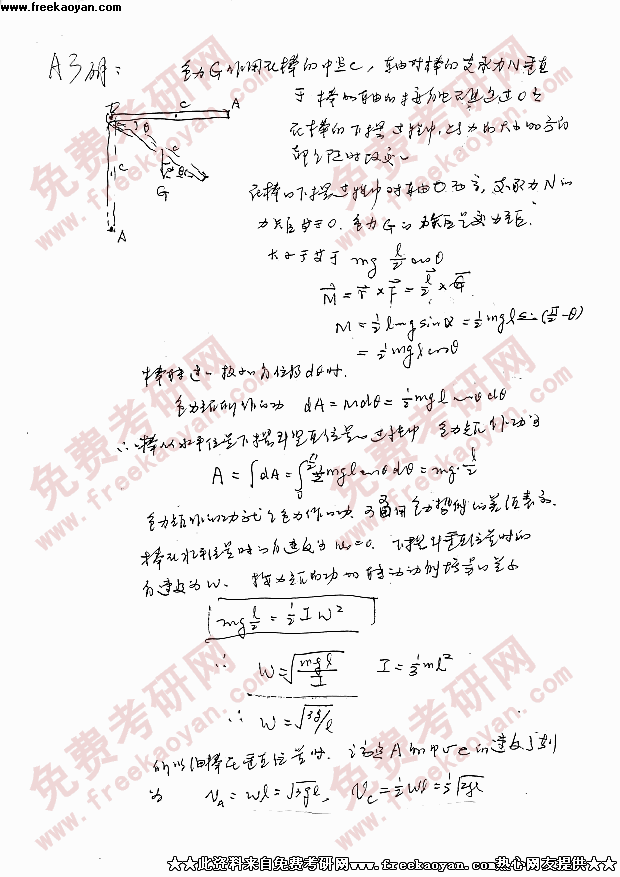 www.freekaoyan.com
重力G作用在棒的中点C，轴对棒的支承力N垂直
于棒和轴的接触面且通过O点
在棒的下摆过程中，此力的大小和方向
都是随时改变
O
C
A
θ
G
C
A
在棒的下摆过程中对轴O而言，支承力N的
力矩等于0。重力G的力矩是变力矩.
大小等于 mg l/2 cosθ
M = r × F = l/2 × G
M = 1/2 l mg sinα = 1/2 mgl sin(π/2 - θ)
= 1/2 mgl cosθ
棒转过一极小角位移dθ时.
重力矩所作的功 dA = Mdθ = 1/2 mgl cosθ dθ
∴ 棒从水平位置下摆到竖直位置过程中 重力矩作功为
A = ∫dA = ∫ mgl cosθ dθ = mg· l/2
重力矩作的功就是重力作的功 可用重力势能的差值表示.
棒在水平位置时的角速度为 ω₀=0. 下摆到垂直位置时的
角速度为 W. 按力矩的功和转动动能增量的关系
mg l/2 = 1/2 I W²
∴ W = √(mgl/I) I = 1/3 ml²
∴ W = √(3g/l)
所以细棒在垂直位置时.
为 V_A = Wl = √3gl,
免费考研网
www.freekaoyan.com
★★此资料来自免费考研网www.freekaoyan.com热心网友提供★★